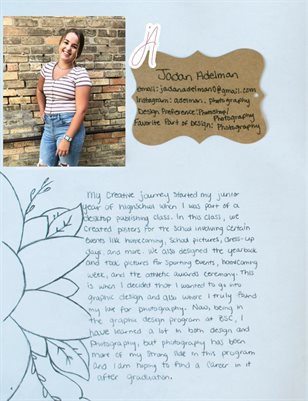 A
Jadan Adelman
email: jadanadelman0@gmail.com
Instagram: adelman.photography
Design Preference: Photoshop/
Photography
Favorite Part of Design: Photography
My creative journey started my junior
year of highschool when I was part of a
desktop publishing class. In this class, we
created posters for the school involving certain
events like homecoming, school pictures, dress-up
days, and more. We also designed the yearbook
and took pictures for sporting events, homecoming
week, and the athletic awards ceremony. This
is when I decided that I wanted to go into
graphic design and also where I truly found
my love for photography. Now, being in
the graphic design program at BSC, I
have learned a lot in both design and
photography, but photography has been
more of my strong side in this program
and I am hoping to find a career in it
after graduation.